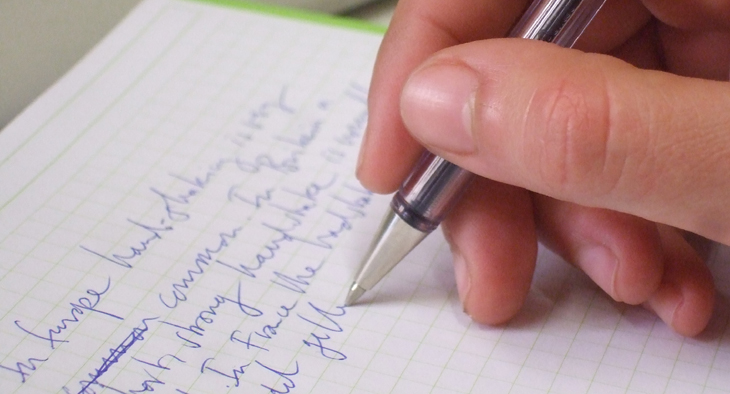 In Europe hand-shaking is very
common. In Britain a
short, strong handshake is usually
. In France the handshake